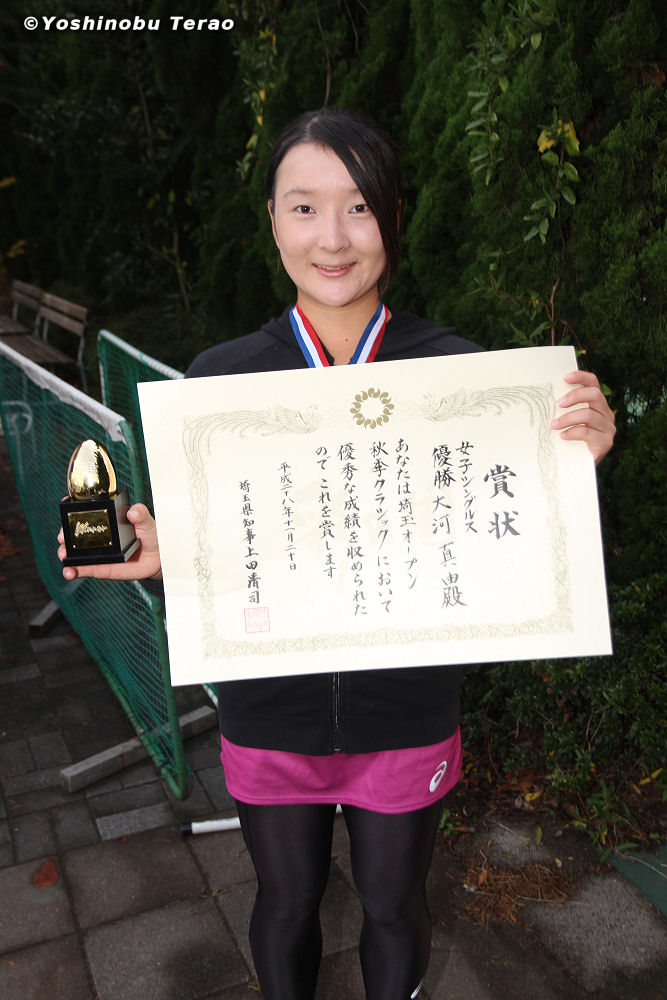 ©Yoshinobu Terao
賞状
女子シングルス
優勝 大河真由殿
あなたは埼玉オープン
秋季クラシックにおいて
優秀な成績を収められた
のでこれを賞します
平成二十八年十一月二十日
埼玉県知事上田清司